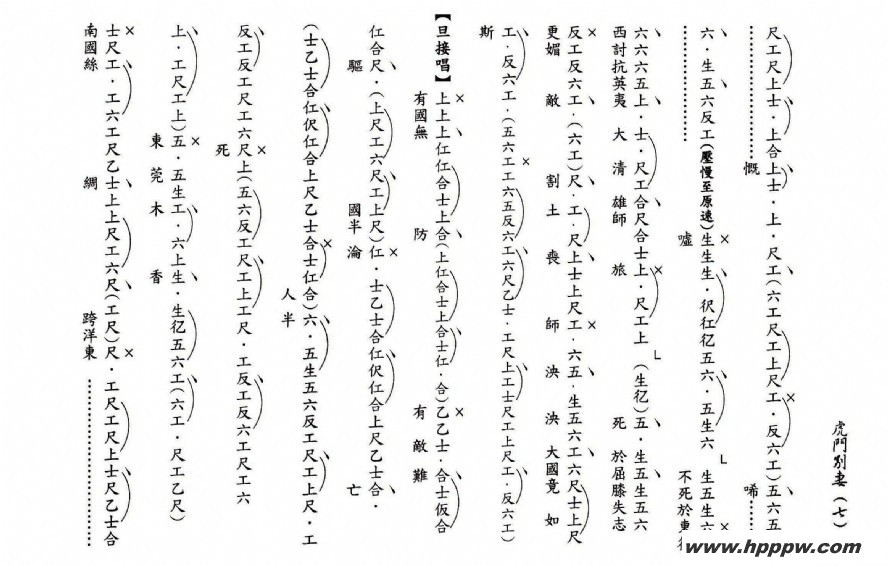 虎門別妻（七）
尺工尺上士．上合上士．上．尺工（六工尺工上尺工．反六工）五六五
……………慨 唏……
六．生五六反工（壓慢至原速）生生生．伬仜亿五六．五生六└ 生五生六
……………噓 不死於東
六六六五上．士．尺工合尺合士上．尺工上└（生亿）五．生五生五六
西討抗英夷 大清雄師旅 死 於屈膝失志
反工反六工．（六工）尺．工．尺上士上尺工．六五．生五六工六尺士上尺
更媚 敵 割土 喪 師 泱 泱 大國竟 如
工．反六工．（五六工工六五反六工六尺乙士．工尺上工士尺工上尺工．反六工）
斯
【旦接唱】上上上仁仁合士上合（上仁合士上合士仁．合）乙乙士．合士仮合
有國無 防 有 敵 難
仁合尺．（上尺工六尺工上尺）仁．士乙士合仁伬仁合上尺乙士合．
驅 國半淪 亡
（士乙士合仁伬仁合上尺乙士合士仁合）六．五生五六反工尺工上尺．工
人半
反工反工尺工六尺上（五六反工尺工上工尺．工反工反六工尺工六
死
上．工尺工上）五．五生工．六上生．生亿五六工（六工．尺工乙尺）
東莞木 香
士尺工．工六工尺乙士上上尺工六尺（工尺）尺．工尺工尺上士尺乙士合
南國絲 綢 跨洋東……………
www.hpppw.com